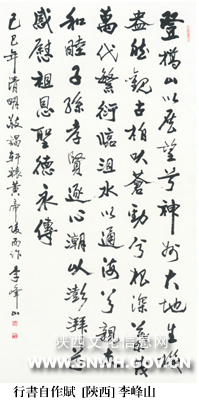 登橋山以展望兮神州大地生機
盎然觀古柏以蒼勁兮根深葉茂
萬代繁衍臨沮水以通海兮親善
和睦子孫孝賢逐心潮以澎湃兮
感慰祖恩聖德永傳
己巳年清明敬謁軒轅黃帝陵而作 李峰山
陕西文化信息网
WWW.SNWH.GOV.CN
行書自作賦 [陝西] 李峰山